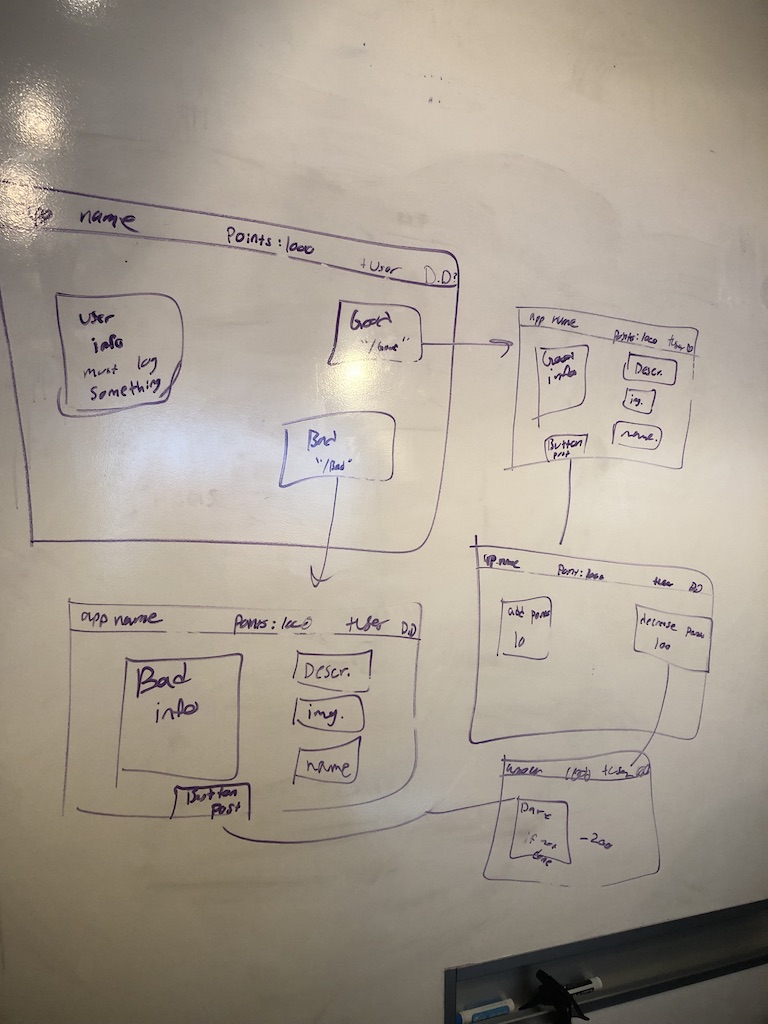 app name
Points: 1000
+User
D.D?
User
info
must log
Something
Good
"/Good"
Bad
"/Bad"
app name
Points: 1000
+User DD
Good
info
Descr.
img.
name.
Button
post
app name
Points: 1000
+User
DD
add points
10
decrease points
100
app name
Points: 1000
+User
D.D
Bad
info
Descr.
img.
name
Button
Post
+User
if not
done
-200